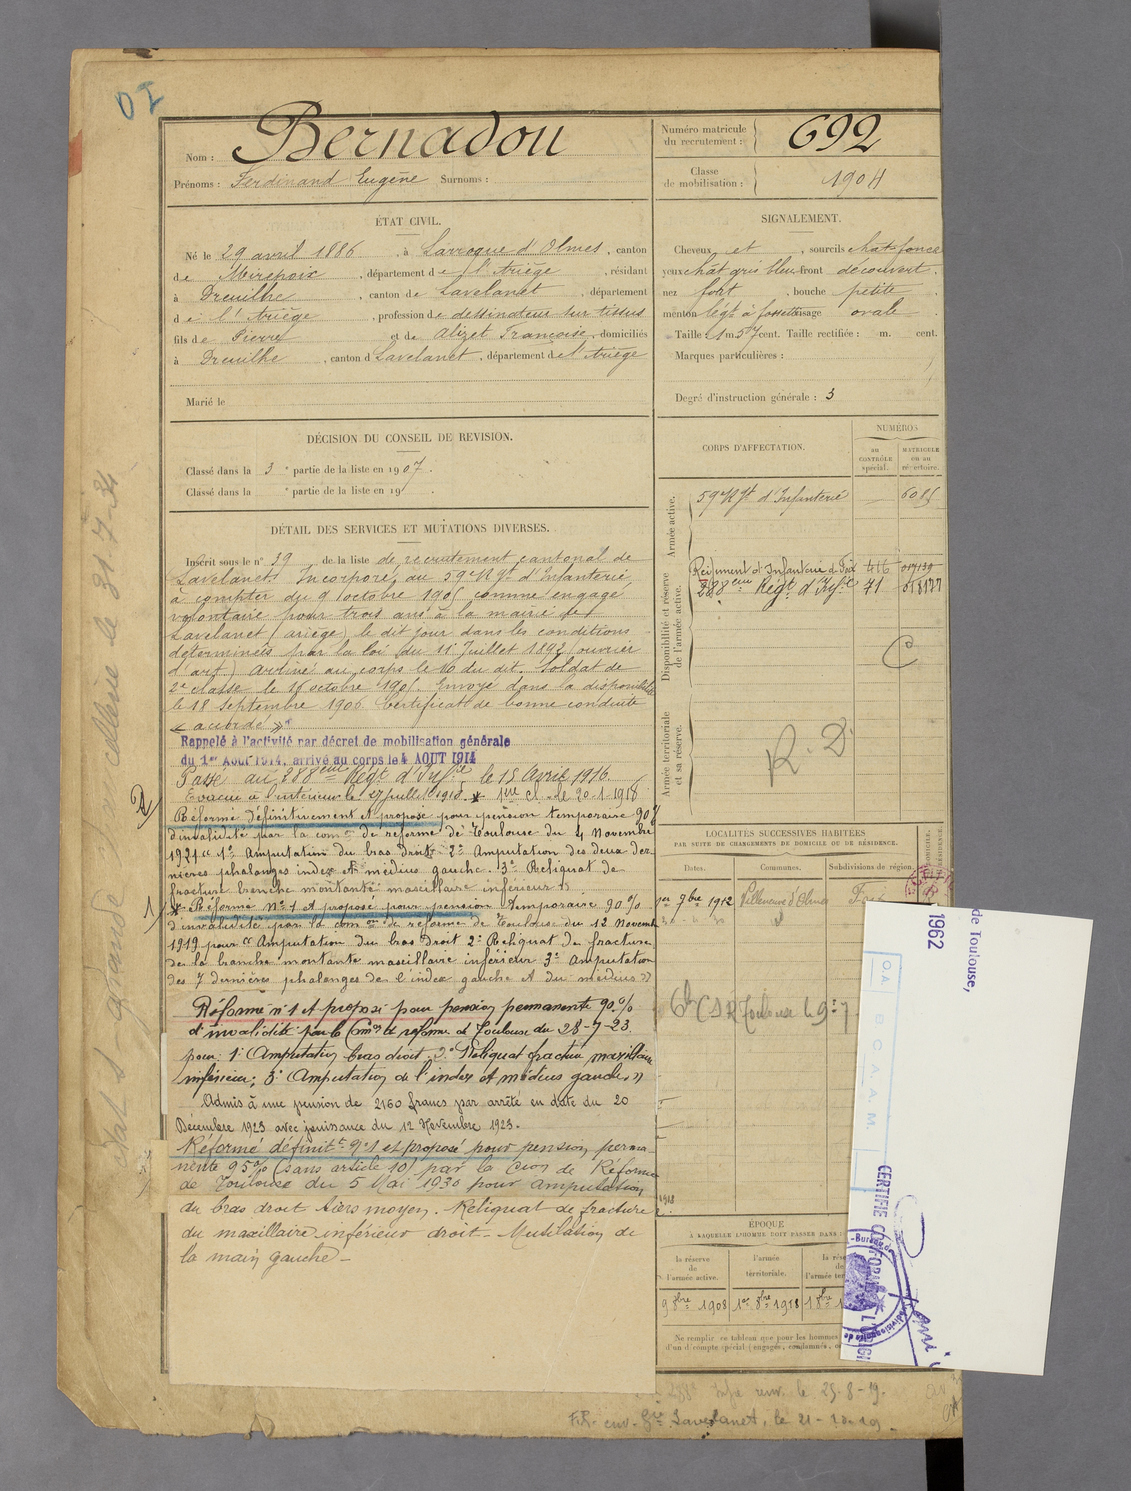 Nom : Bernadou
Prénoms : Ferdinand Eugène Surnoms :
Numéro matricule du recrutement : 692
Classe de mobilisation : 1904
ÉTAT CIVIL.
Né le 29 avril 1886, à Larroque d'Olmes, canton
de Mirepoix, département de l'Ariège, résidant
à Dreuilhe, canton de Lavelanet, département
de l'Ariège, profession de dessinateur sur tissus
fils de Pierre et de Alizet Françoise, domiciliés
à Dreuilhe, canton d Lavelanet, département de l'Ariège
Marié le
SIGNALEMENT.
Cheveux et, sourcils chat foncé
yeux chât gris bleu front découvert.
nez fort, bouche petite.
menton légt à fossette visage ovale
Taille 1 m 57 cent. Taille rectifiée : m. cent.
Marques particulières :
Degré d'instruction générale : 3
DÉCISION DU CONSEIL DE REVISION.
Classé dans la 3e partie de la liste en 1907.
Classé dans la e partie de la liste en 19 .
DÉTAIL DES SERVICES ET MUTATIONS DIVERSES.
Inscrit sous le n° 39 de la liste de recrutement cantonal de
Lavelanet. Incorporé au 59e Rgt d'Infanterie
à compter du 9 octobre 1905 comme engagé
volontaire pour trois ans à la mairie de
Lavelanet (ariège) le dit jour dans les conditions
déterminées par la loi du 11 Juillet 1892 (ouvrier
d'art) arrivé au corps le 10 du dit. Soldat de
2e classe le 16 octobre 1905. Envoyé dans la disponibilité
le 18 Septembre 1906. Certificat de bonne conduite
« accordé »
Rappelé à l'activité par décret de mobilisation générale
du 1er AOUT 1914, arrivé au corps le 4 AOUT 1914
Passé au 288eme Régt d'Infie le 15 Avril 1916.
Evacué à l'intérieur le 27 juillet 1918. * 1ère cl. de 20-1-1918
Réformé définitivement et proposé pour pension temporaire 90%
d'invalidité par la comon de réforme de Toulouse du 4 Novembre
1921 « 1° Amputation du bras droit. 2° Amputation des deux der-
nières phalanges index et médius gauche. 3° Reliquat de
fracture branche montante maxillaire inférieur »
* Réformé N° 1 et proposé pour pension temporaire 90%
d'invalidité par la comon de réforme de Toulouse du 12 Novembre
1919 pour « Amputation du bras droit 2° Reliquat de fracture
de la branche montante maxillaire inférieur 3° Amputation
des 7 dernières phalanges de l'index gauche et du médius »
Réformé n° 1 et proposé pour pension permanente 90%
d'invalidité par la Comon de réforme de Toulouse du 28-7-23
pour 1° Amputation bras droit. 2° Reliquat fracture maxillaire
inférieur; 3° Amputation de l'index et médius gauche »
Admis à une pension de 2160 francs par arrêté en date du 20
Décembre 1923 avec jouissance du 12 Novembre 1923.
Réformé définitt n° 1 et proposé pour pension perma-
nente 95% (sans article 10) par la Cion de Réforme
de Toulouse du 5 Mai 1930 pour Amputation
du bras droit tiers moyen. Reliquat de fracture
du maxillaire inférieur droit - Mutilation de
la main gauche -
CORPS D'AFFECTATION.
NUMÉROS
au CONTRÔLE spécial.
MATRICULE ou au répertoire.
Armée active.
59e Rgt d'Infanterie
Disponibilité et réserve de l'armée active.
Régiment d'Infanterie de Foix 416
288eme Régt d'Infie 71
C
Armée territoriale et sa réserve.
R. D.
LOCALITÉS SUCCESSIVES HABITÉES
PAR SUITE DE CHANGEMENTS DE DOMICILE OU DE RÉSIDENCE.
Dates. Communes. Subdivisions de région.
1er 9bre 1912 Villeneuve d'Olmes Foix
CSR Toulouse le 9-7
ÉPOQUE
À LAQUELLE L'HOMME DOIT PASSER DANS
la réserve de l'armée active.
l'armée territoriale.
9 8bre 1908 1er 8bre 1918
Ne remplir ce tableau que pour les hommes
d'un décompte spécial (engagés, condamnés,
inf. renv. le 25-8-19.
Lavelanet, le 21-10-19
de Toulouse,
1962
O.A. E C.A.A.M.
CERTIFIÉ CONFORME